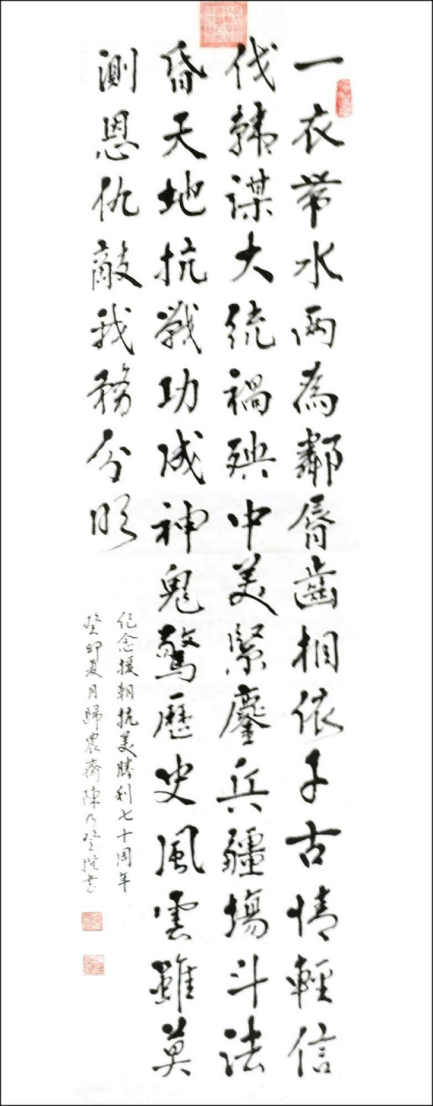 一衣帶水兩為鄰脣齒相依千古情輕信
伐韓謀大統禍殃中美緊鏖兵疆場斗法
昏天地抗戰功成神鬼驚歷史風雲雖莫
測恩仇敵我務分明
紀念援朝抗美勝利七十周年
癸卯夏月歸農齋陳乃登撰書